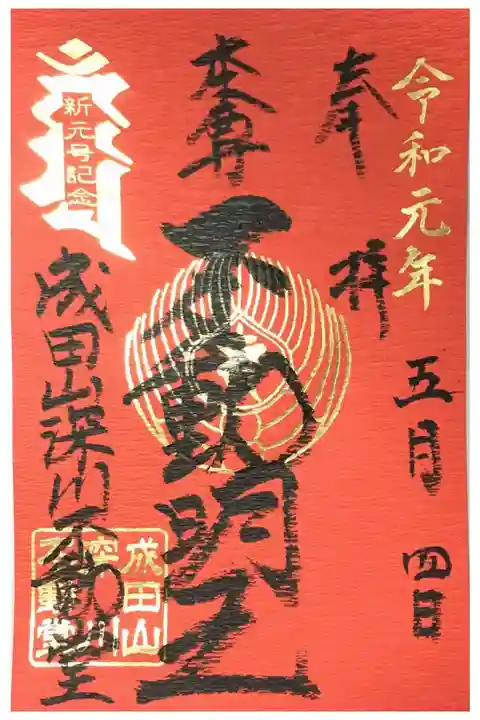 令和元年 五月 四日
奉拝
本尊
不動明王
新元号記念
成田山深川不動堂
成田山
深川
不動堂